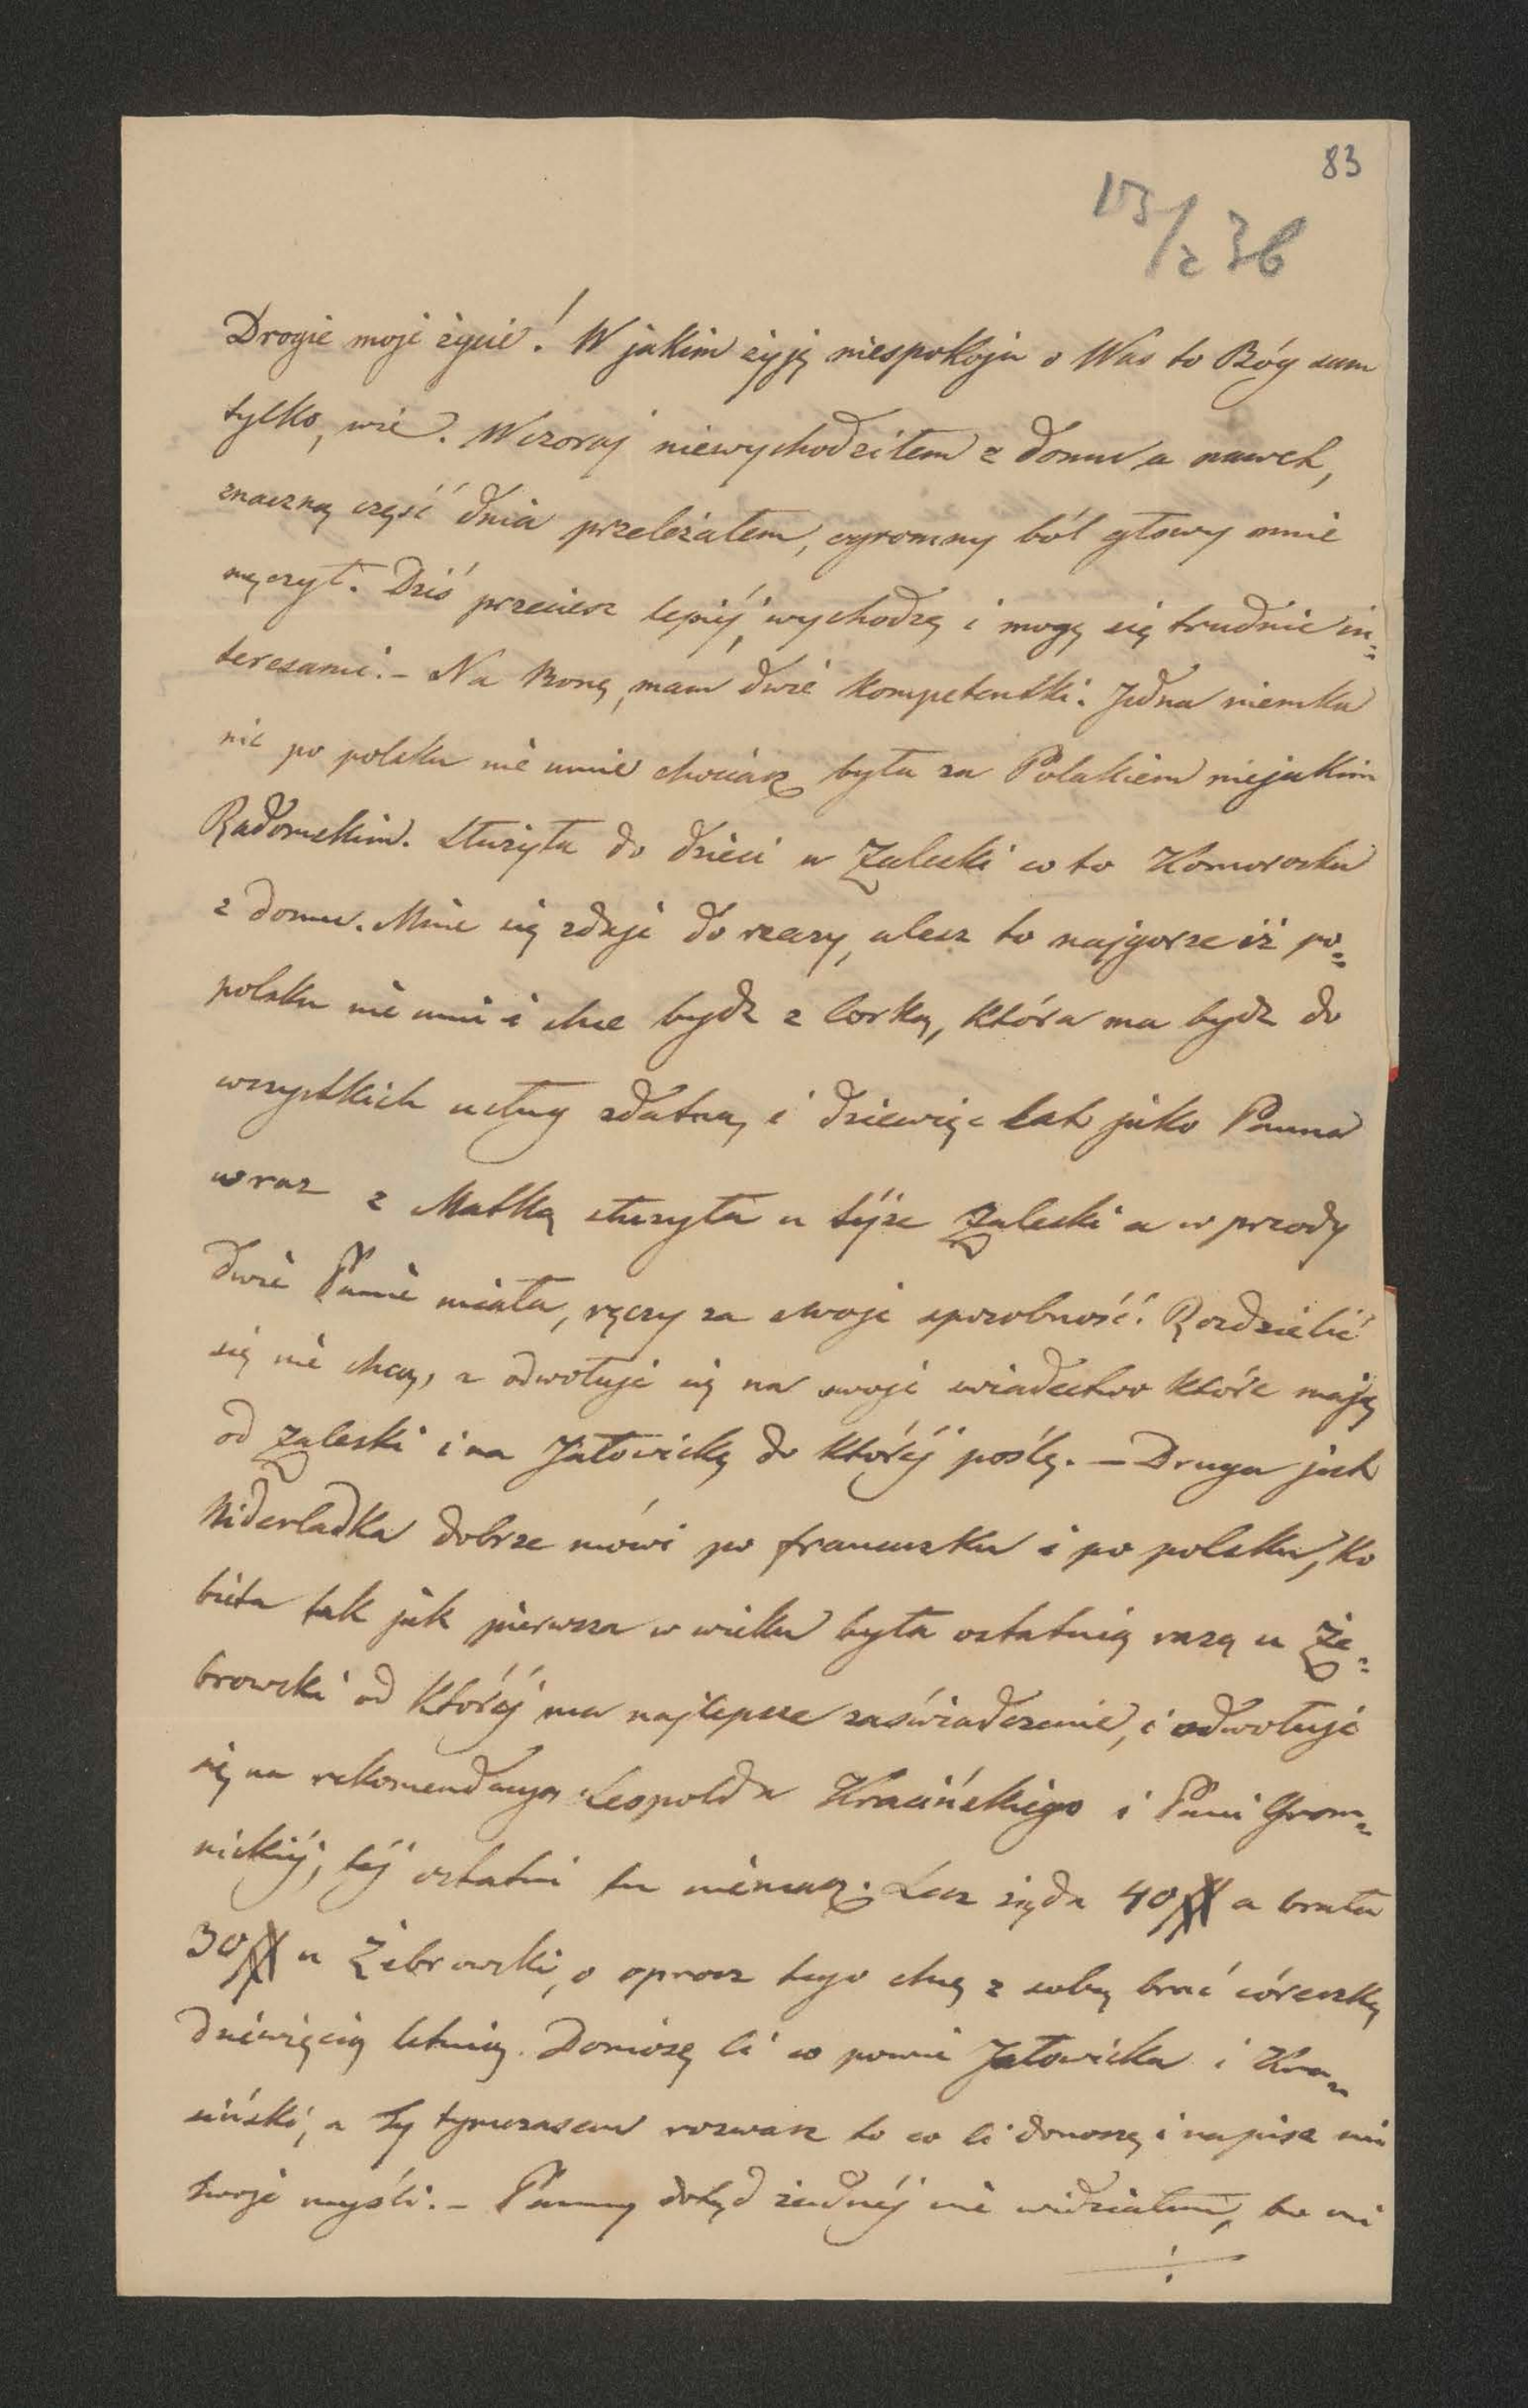 83
13/2 36
Drogie moje życie! W jakim żyję niespokoju o Was to Bóg sam
tylko, wie. Wczoraj niewychodziłem z domu a nawet,
znaczną część dnia przeleżałem, ogromny ból głowy mnie
męczył. Dziś przeciesz lepiéj, wychodzę i mogę się trudnić in=
teresami. – Na Bonę, mam dwie kompetentki. Jedna niemka
nic po polsku nie umie chociasz była za Polakiem niejakim
Radomskim. Służyła do dzieci u Zaleski co to Komoroska
z domu. Mnie się zdaje do rzeczy, alesz to najgorsze iż po=
polsku nie umi i chce bydz z Corką, która ma bydz do
wszystkich usług zdatną, i dziewięc lat jako Panna
wraz z Matką służyła u téjże Zaleski a w przody
dwie Panie miała, ręczy za swoje sposobność. Rozdzielić
się nie chcą, a odwołuje się na swoje swiadectwo które mają
od Zaleski i na Jałowicką do któréj poślę. – Druga jest
Niderladka dobrze mówi po francuzku i po polsku, ko
bieta tak jak pierwsza w wieku była ostatnią razą u Że=
browski od któréj ma najlepsze zaświadczenie, i odwołuje
się na rekomendacyą Leopolda Krasińskiego i Pani Grom=
nickiéj, téj ostatni tu niémasz. Lecz żąda 40 # a brała
30 # u Żebrowski, o oprocz tego chcę z sobą brać córeczkę
dziéwięcią letnią. Doniosę Ci co powie Jałowicka i Kra=
siński, a Ty tymczasem rozwasz to co Ci donoszę i napisz mi
twoje myśli. – Panny dotąd żadnéj nie widziałem, bo mi